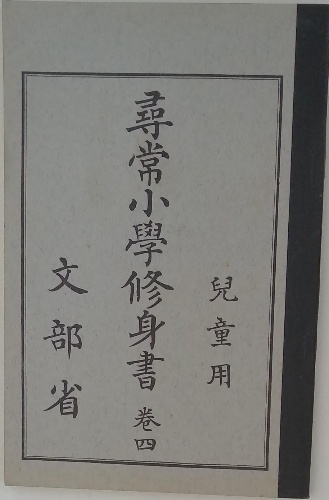 兒童用
尋常小學修身書 卷四
文部省